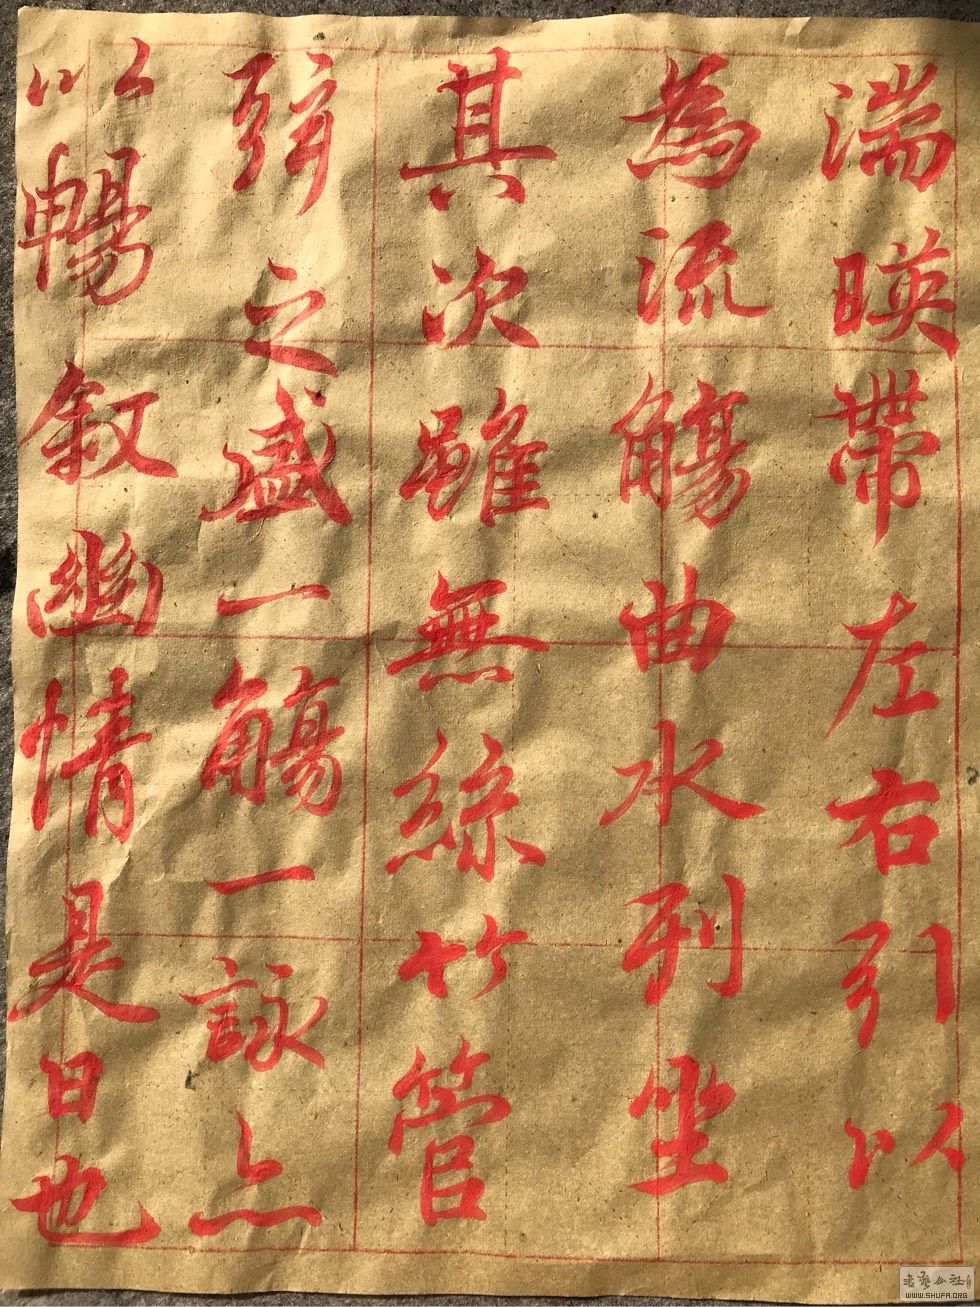 湍暎帶左右引以
為流觴曲水列坐
其次雖無絲竹管
弦之盛一觴一詠亦
以暢敘幽情是日也
WWW.SHUFA.ORG